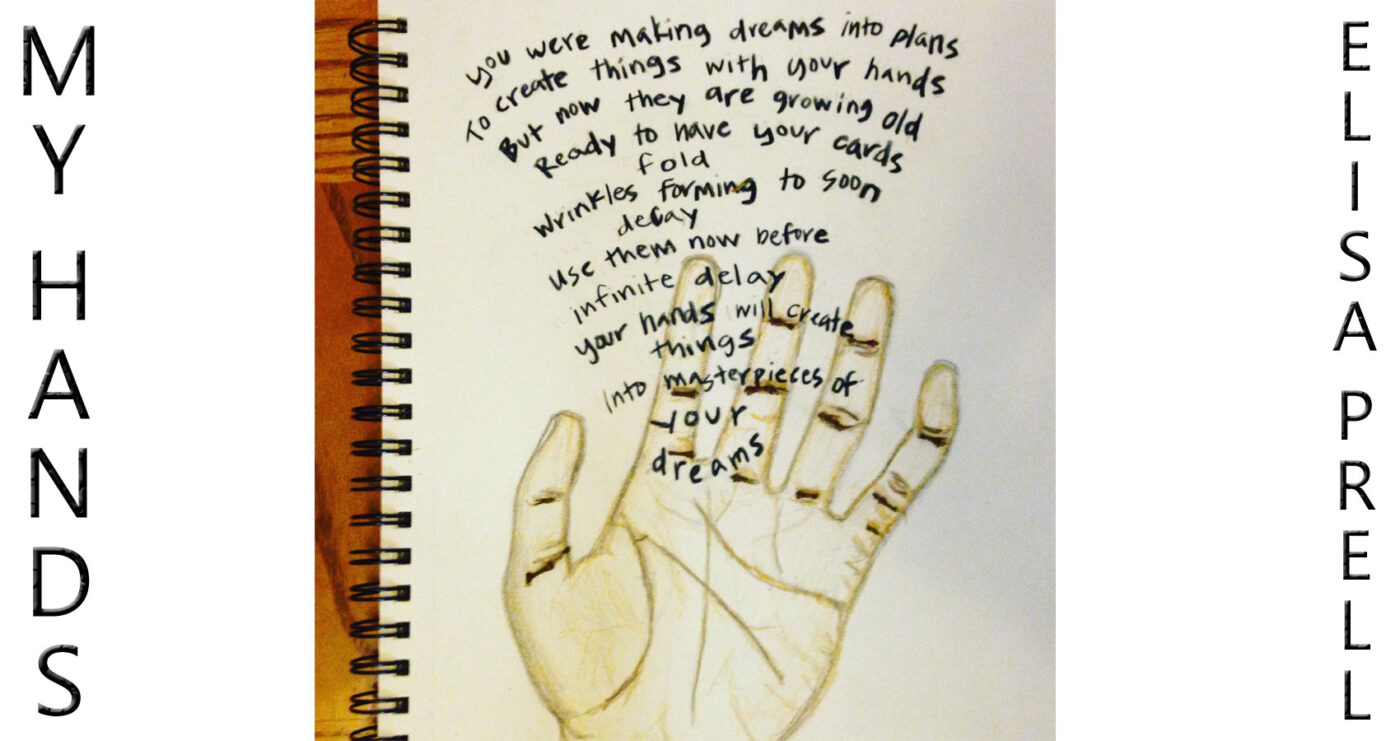 MY HANDS
you were making dreams into plans
To create things with your hands
But now they are growing old
Ready to have your cards
fold
wrinkles forming to soon
decay
use them now before
infinite delay
your hands will create
things
Into masterpieces of
your
dreams
ELISA PRELL